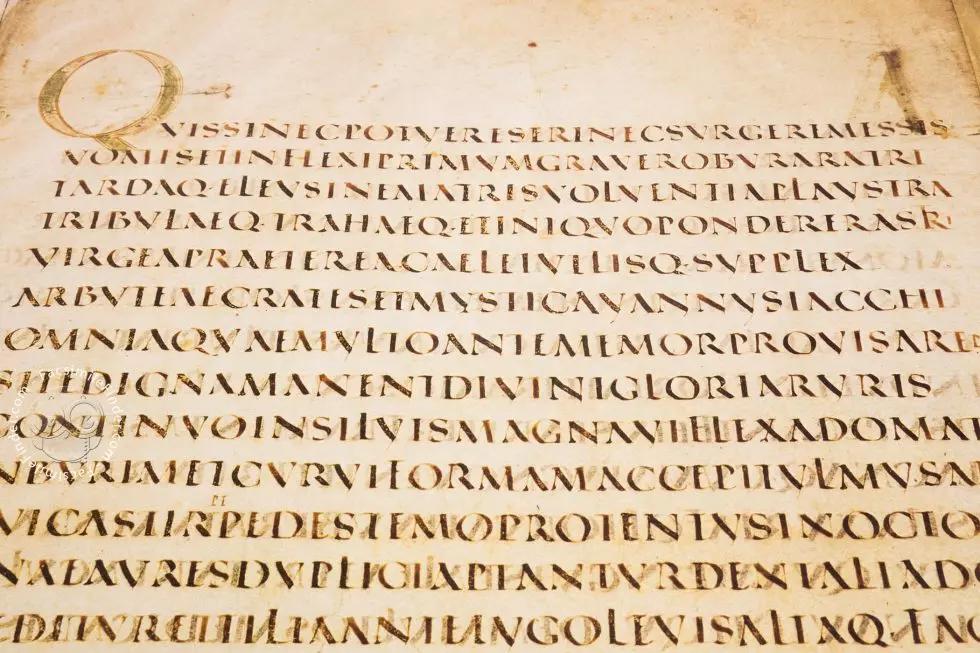 QVISSINECPOTVERESERINECSVRGEREMESSIS
VOMISETINFLEXIPRIMVMGRAVEROBVRARATRI
TARDAQ·ELEVSINEMATRISVOLVENTIAPLAVSTRA
TRIBVLAEQ·TRAHAEQ·ETINIQVOPONDERERASR
VIRGEAPRAETEREACAELEIVILISQ·SVPPLEX
ARBVTEAECRATESETMYSTICAVANNVSIACCHI
OMNIAQVAEMVLTOANTEMEMORPROVISARE
SITEDIGNAMANENTDIVINIGLORIARVRIS
CONTINVOINSILVISMAGNAVIFLEXADOMAT
RIMETCVRVIFORMAMACCEPITVLMVSA
PE
VICASTIRPEDESTEMOPROTENTVSINOCTO
NAEAVRESDVPLICIAPTANTVRDENTALIADO
EDITVRETTILIANTEIVGOLEVISALTAQ·FAG